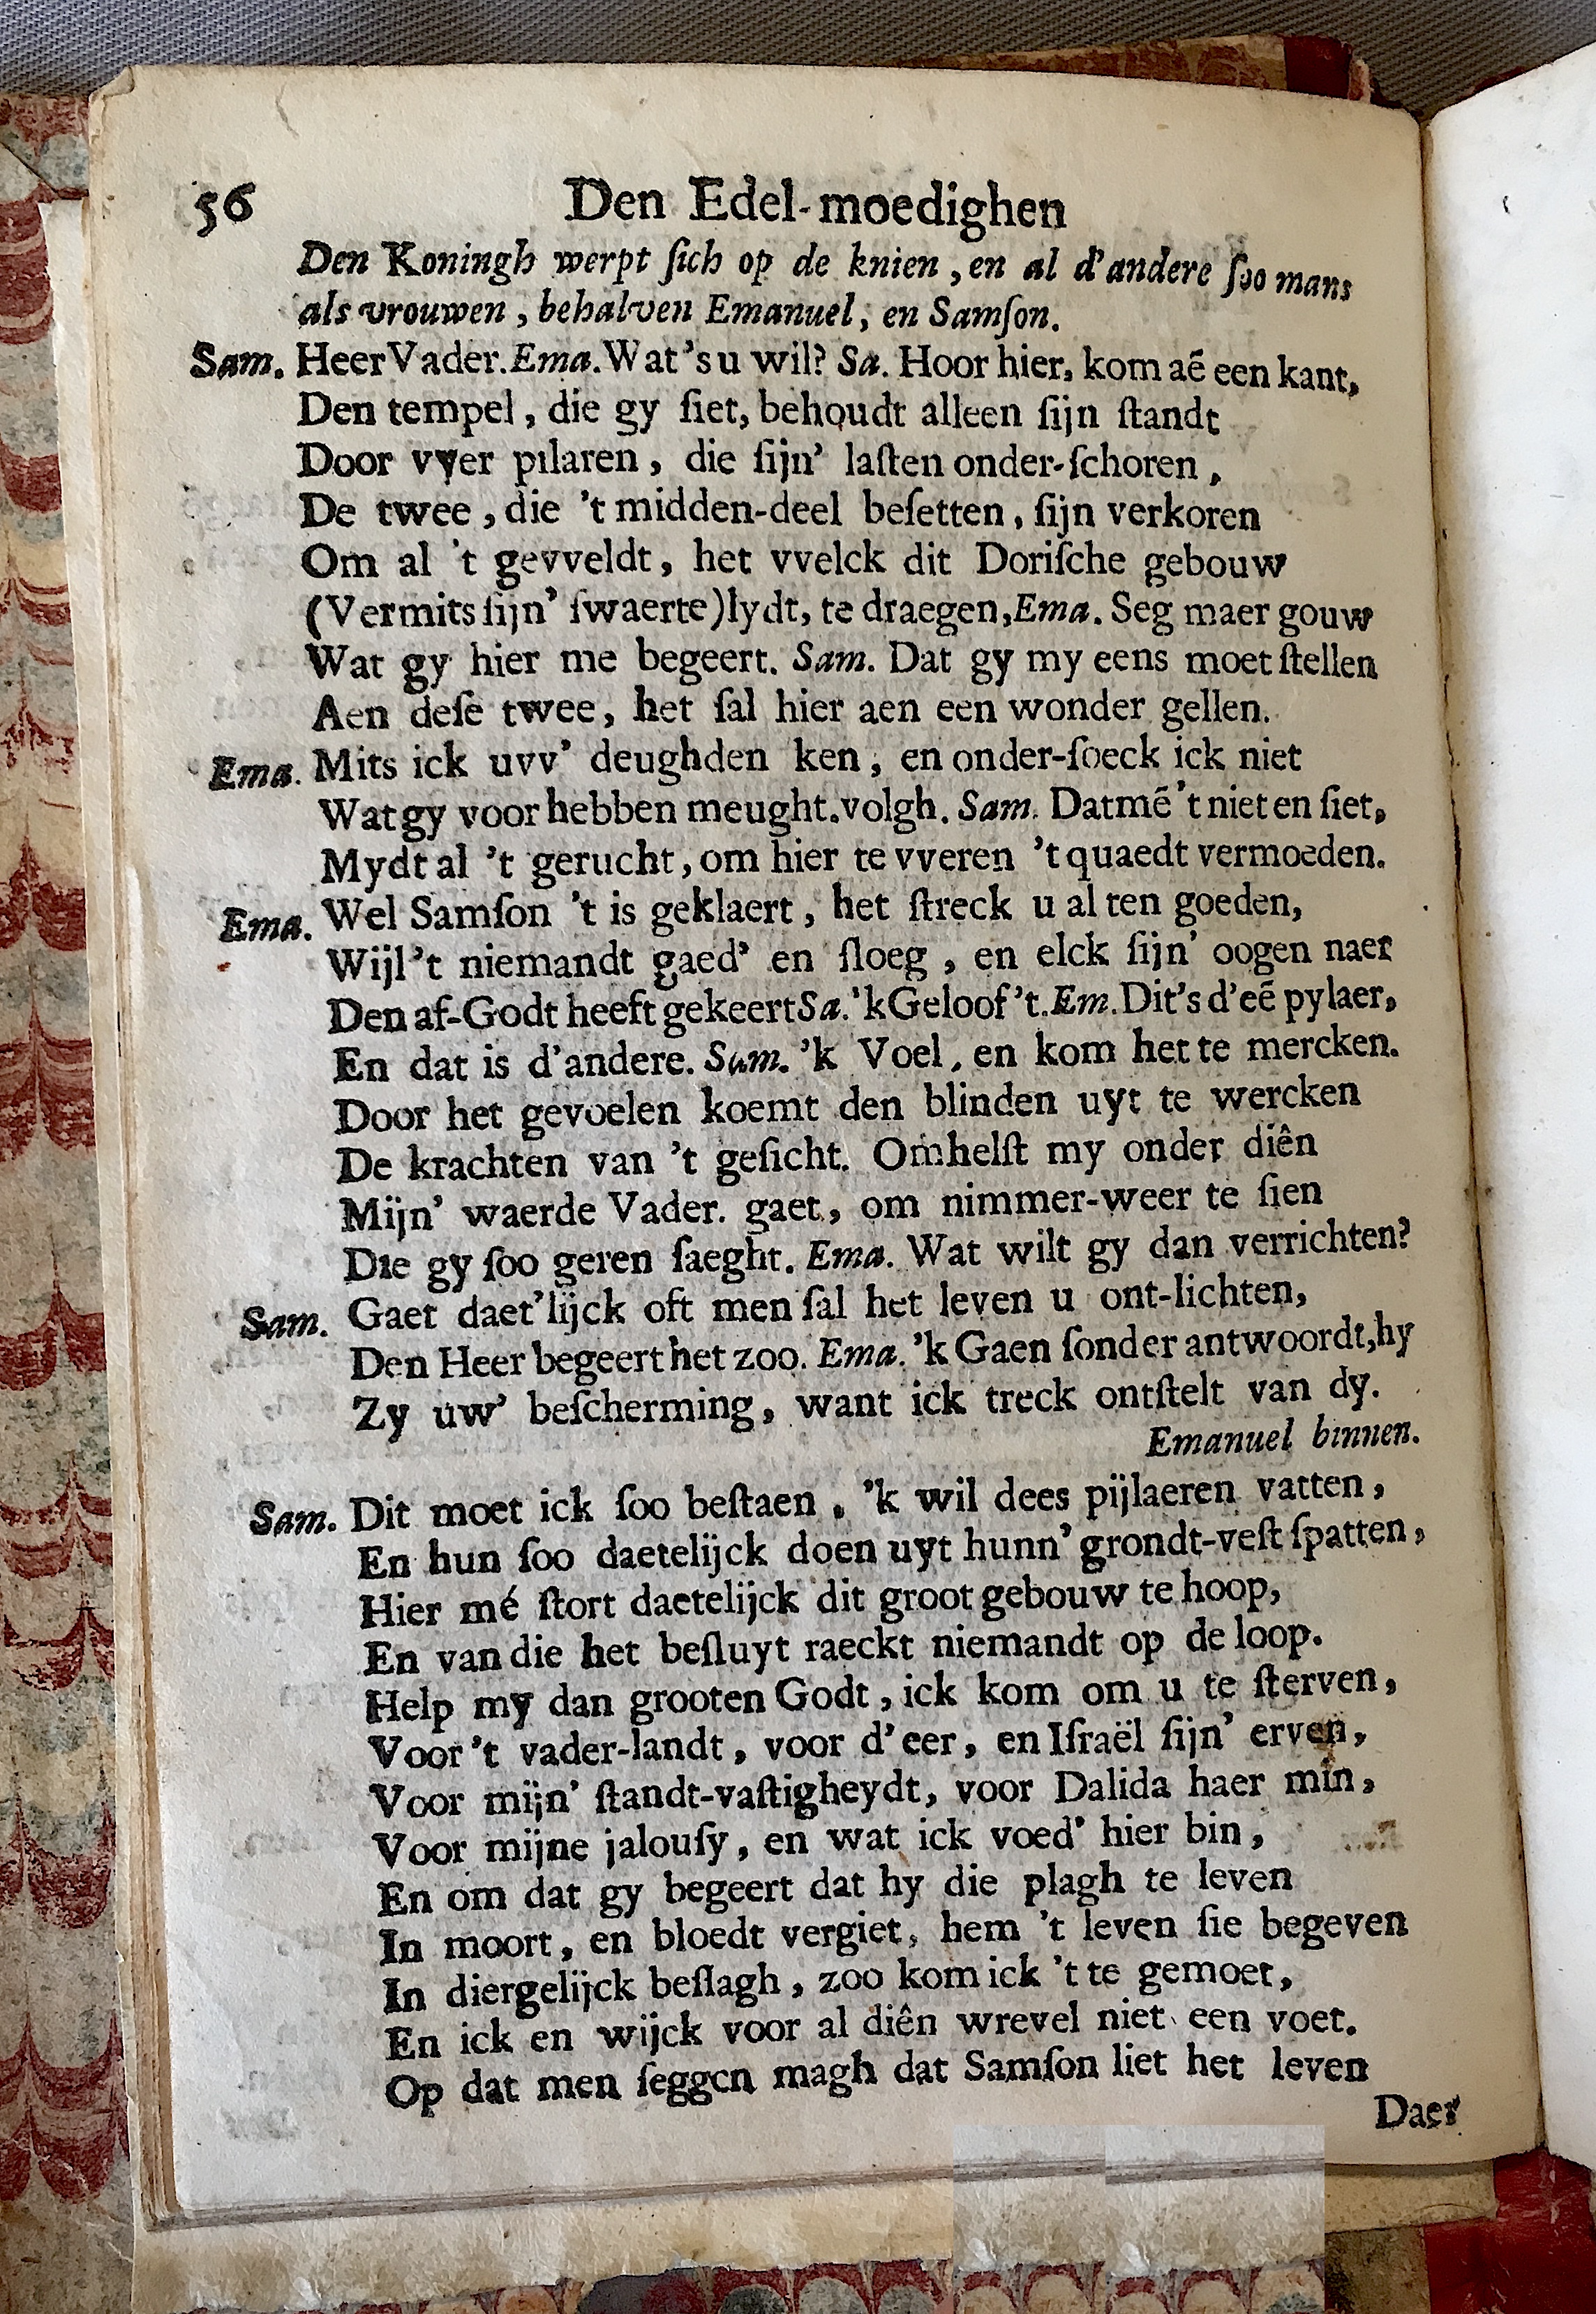 56 Den Edel-moedighen
Den Koningh werpt ſich op de knien, en al d'andere ſoo mans
als vrouwen, behalven Emanuel, en Samſon.
Sam. Heer Vader. Ema. Wat's u wil? Sa. Hoor hier, kom aē een kant,
Den tempel, die gy ſiet, behoudt alleen ſijn ſtandt
Door vyer pilaren, die ſijn' laſten onder-ſchoren,
De twee, die 't midden-deel beſetten, ſijn verkoren
Om al 't gevveldt, het vvelck dit Doriſche gebouw
(Vermits ſijn' ſwaerte) lydt, te draegen, Ema. Seg maer gouw
Wat gy hier me begeert. Sam. Dat gy my eens moet ſtellen
Aen deſe twee, het ſal hier aen een wonder gellen.
Ema. Mits ick uvv' deughden ken, en onder-ſoeck ick niet
Wat gy voor hebben meught. volgh. Sam. Datmē 't niet en ſiet,
Mydt al 't gerucht, om hier te vveren 't quaedt vermoeden.
Ema. Wel Samſon 't is geklaert, het ſtreck u al ten goeden,
Wijl 't niemandt gaed' en ſloeg, en elck ſijn' oogen naer
Den af-Godt heeft gekeert Sa. 'k Geloof 't. Em. Dit's d'eē pylaer,
En dat is d'andere. Sam. 'k Voel, en kom het te mercken.
Door het gevoelen koemt den blinden uyt te wercken
De krachten van 't geſicht. Omhelſt my onder diên
Mijn' waerde Vader. gaet, om nimmer-weer te ſien
Die gy ſoo geren ſaeght. Ema. Wat wilt gy dan verrichten?
Sam. Gaet daet'lijck oft men ſal het leven u ont-lichten,
Den Heer begeert het zoo. Ema. 'k Gaen ſonder antwoordt, hy
Zy uw' beſcherming, want ick treck ontſtelt van dy.
Emanuel binnen.
Sam. Dit moet ick ſoo beſtaen, 'k wil dees pijlaeren vatten,
En hun ſoo daetelijck doen uyt hunn' grondt-veſt ſpatten,
Hier mé ſtort daetelijck dit groot gebouw te hoop,
En van die het beſluyt raeckt niemandt op de loop.
Help my dan grooten Godt, ick kom om u te ſterven,
Voor 't vader-landt, voor d'eer, en Iſraël ſijn' erven,
Voor mijn' ſtandt-vaſtigheydt, voor Dalida haer min,
Voor mijne jalouſy, en wat ick voed' hier bin,
En om dat gy begeert dat hy die plagh te leven
In moort, en bloedt vergiet, hem 't leven ſie begeven
In diergelijck beſlagh, zoo kom ick 't te gemoet,
En ick en wijck voor al diên wrevel niet een voet.
Op dat men ſeggen magh dat Samſon liet het leven
Daer